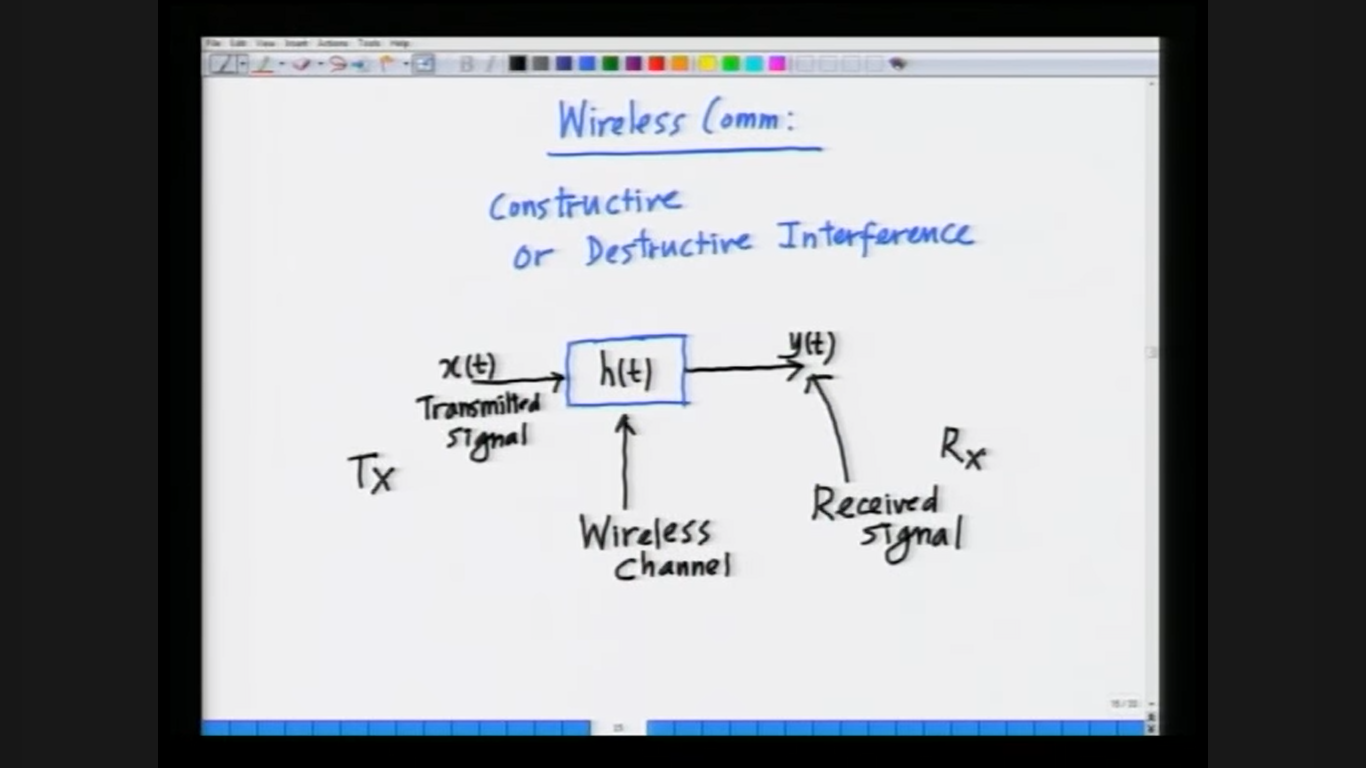 File Edit View Insert Actions Tools Help
B I
Wireless Comm:
Constructive
or Destructive Interference
x(t)
h(t)
y(t)
Transmitted
Signal
Tx
Rx
Wireless
Channel
Received
Signal
15